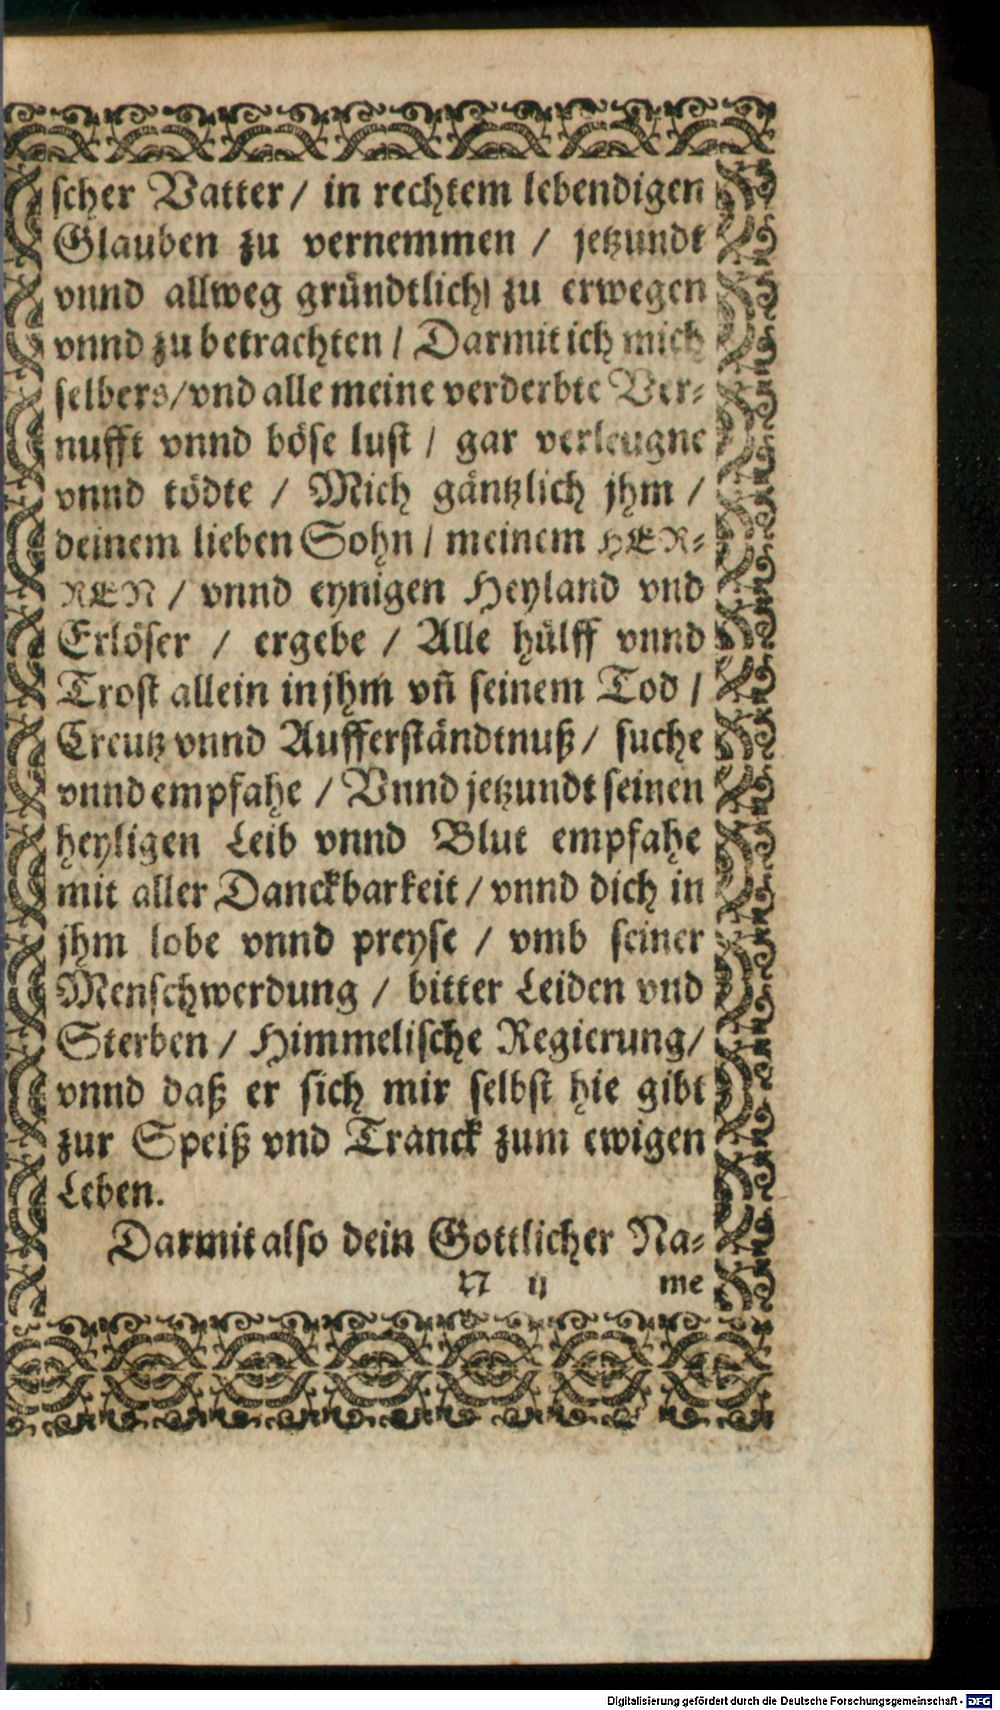 scher Vatter / in rechtem lebendigen
Glauben zu vernemmen / jetzundt
vnnd allweg gründtlich zu erwegen
vnnd zu betrachten / Darmit ich mich
selbers / vnd alle meine verderbte Ver-
nufft vnnd böse lust / gar verleugne
vnnd tödte / Mich gäntzlich jhm /
deinem lieben Sohn / meinem HER-
REN / vnnd eynigen Heyland vnd
Erlöser / ergebe / Alle hülff vnnd
Trost allein in jhm vñ seinem Tod /
Creutz vnnd Aufferständtnuß / suche
vnnd empfahe / Vnnd jetzundt seinen
heyligen Leib vnnd Blut empfahe
mit aller Danckbarkeit / vnnd dich in
jhm lobe vnnd preyse / vmb seiner
Menschwerdung / bitter Leiden vnd
Sterben / Himmelische Regierung /
vnnd daß er sich mir selbst hie gibt
zur Speiß vnd Tranck zum ewigen
Leben.
Darmit also dein Gottlicher Na-
N ij me
Digitalisierung gefördert durch die Deutsche Forschungsgemeinschaft - DFG